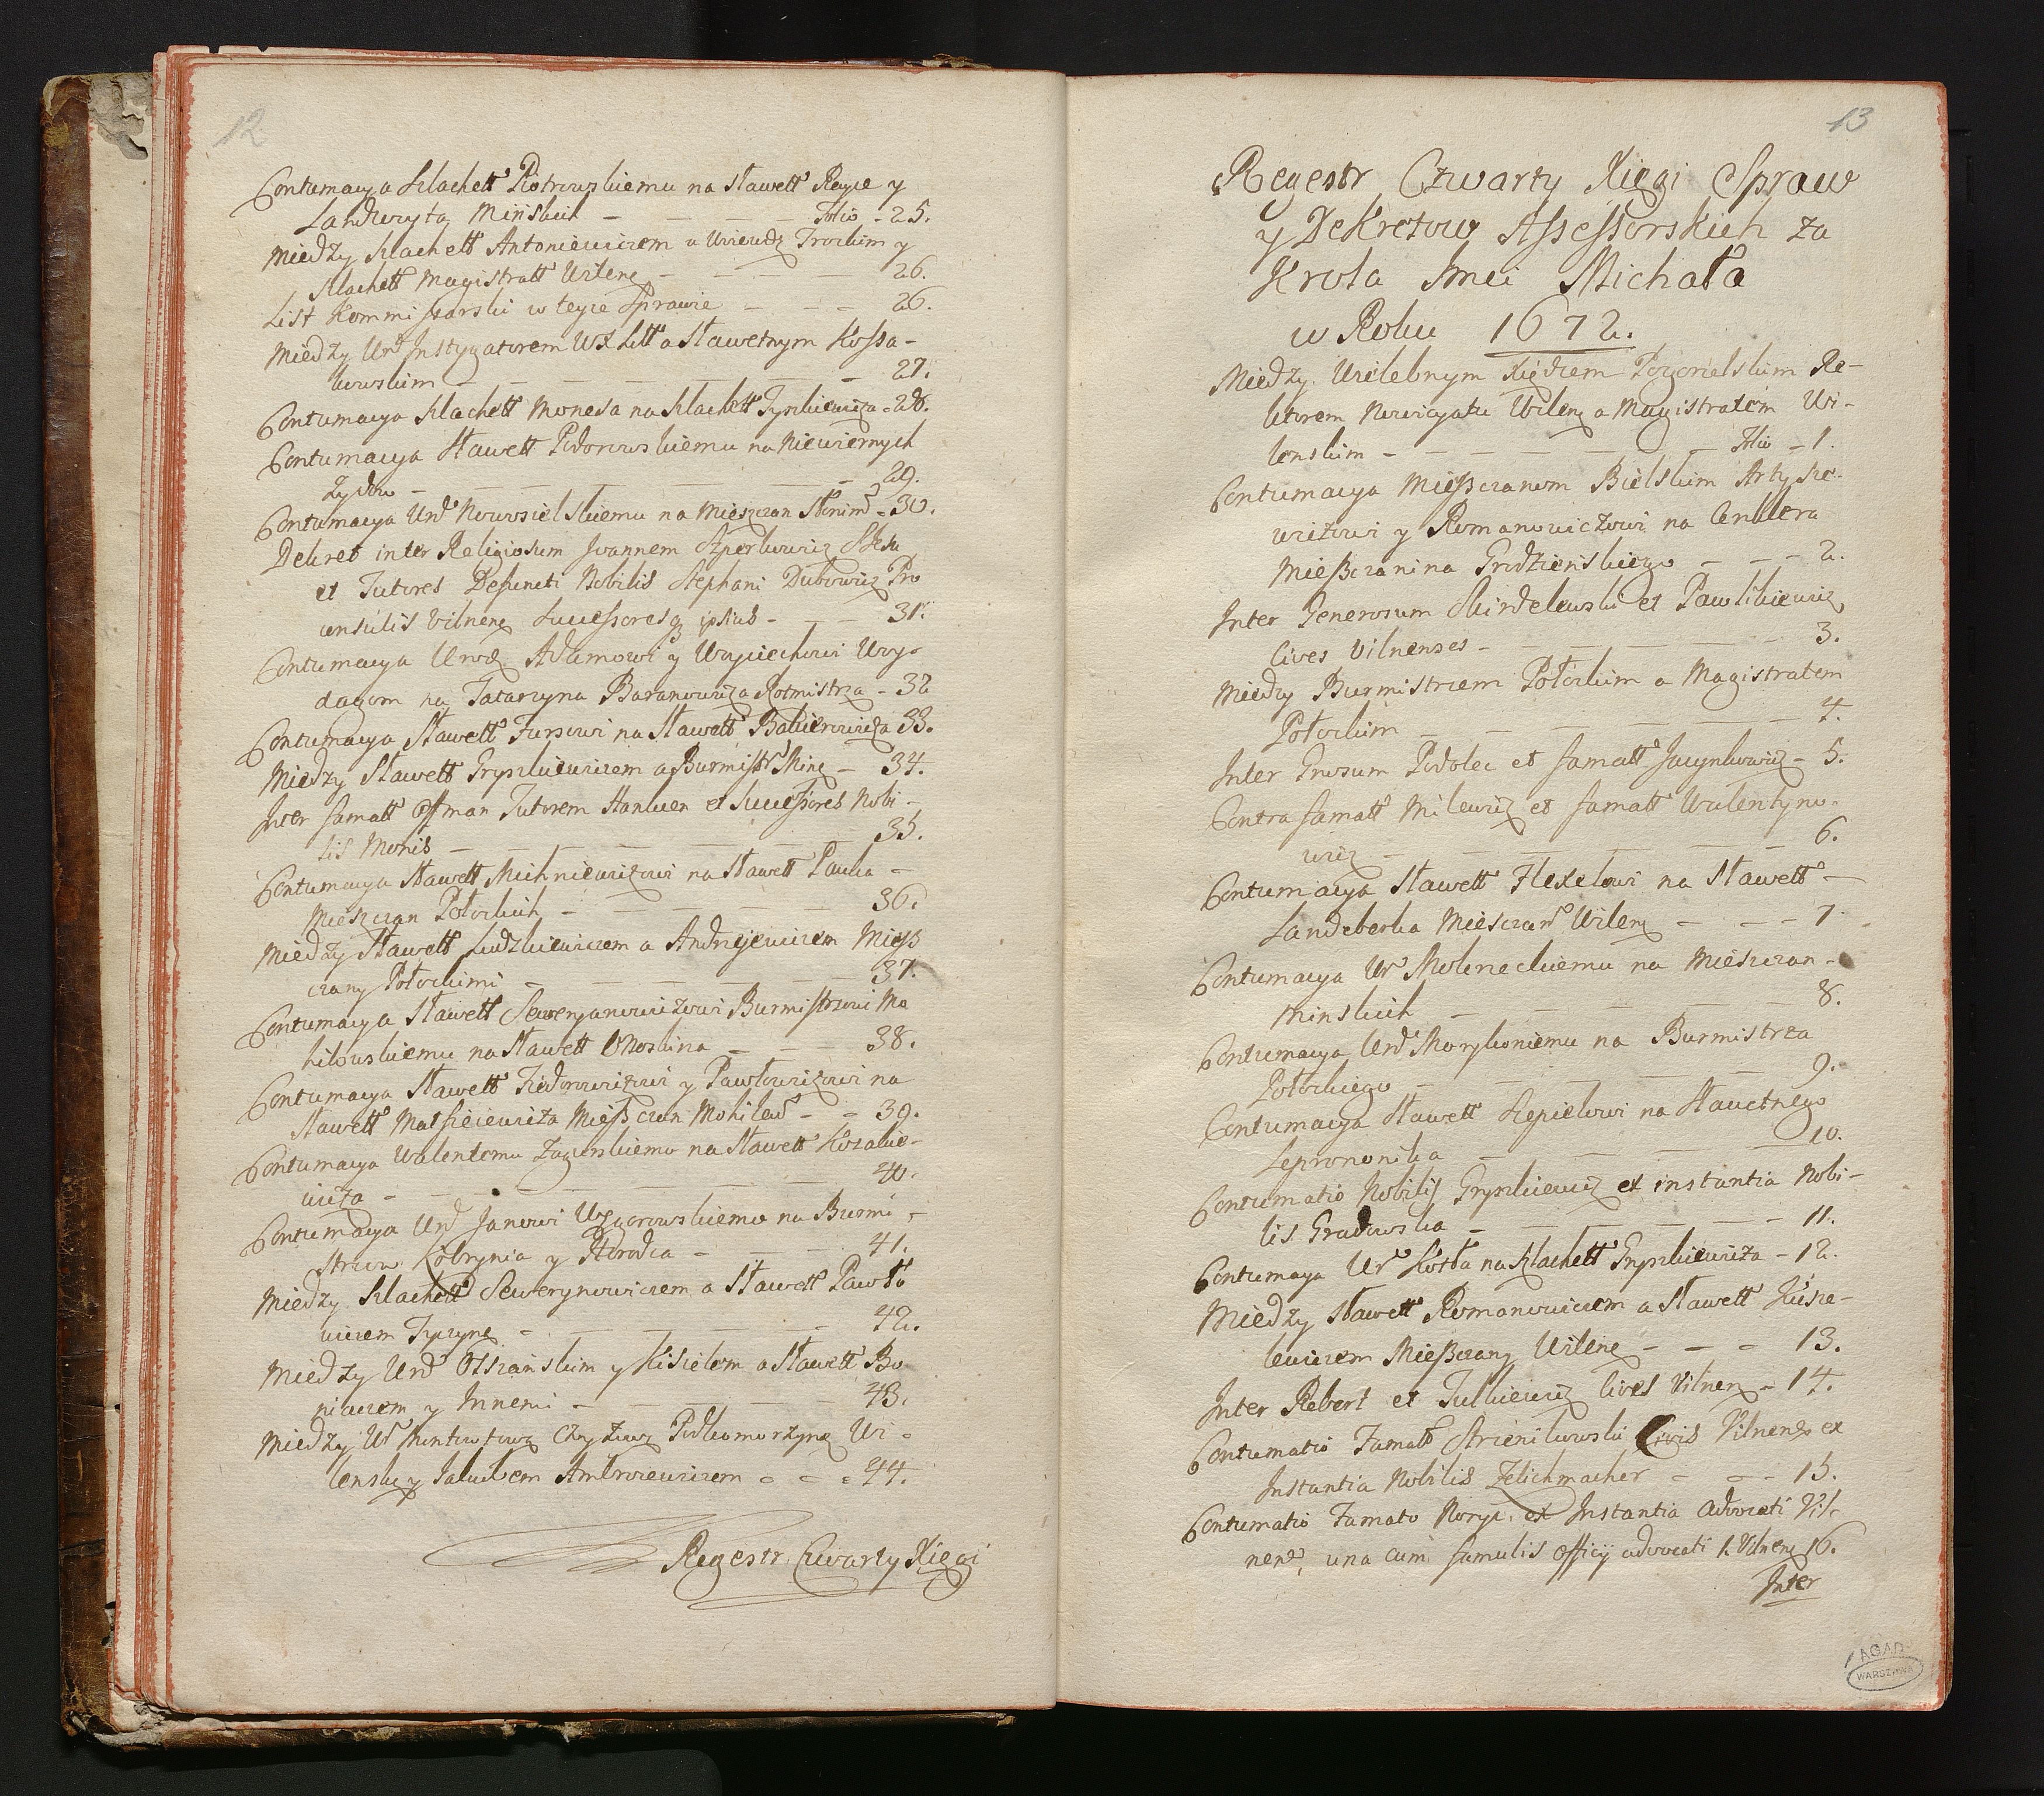 12
Contumacya Szlachett Piotrowskiemu na Sławett Reyze y
Landwoytą Mińskich – – – – Folio – 25.
Między Szlachett Antoniewiczem a Urzędz Trockim y
Szlachett Magistratt Wilenę – – – – 26.
List Kommissarski w teyze Sprawie – – – 26.
Między Urd Instygatorem WX Litt a Sławetnym Kossa-
kowskim – – – – – – – 27.
Contumacya Szlachett Monesa na Szlachett Tyszkiewicza – 28.
Contumacya Sławett Fedorowskiemu na Niewiernych
Zydow – – – – – – – 29.
Contumacya Urd Nowosielskiemu na Mieszczan Słonimd – 30.
Dekret inter Religiosum Joannem Szperkowicz
et Tutores Defuncti Nobilis Stephani Dubowicz Pro
consulis Vilnenę Successoresq ipsius – – – 31.
Contumacya Urodz Adamowi y Woyciechowi Woy-
dagom na Tatarzyna Baranowicza Rotmistrza – 32
Contumacya Sławett Fursowi na Sławett 33.
Między Sławett Gryszkiewiczem a Burmistr Minę – 34.
Inter famatt Offman Tutorem et Successores Nobi-
lis Monis – – – – – – 35.
Contumacya Sławett Michniewiczowi na Sławett Pauka –
Mieszczan Połockich – – – – – 36.
Między Sławett Ludzkiewiczem a Andrzejewiczem Miesz
czany Połockimi – – – – – – 37.
Contumacya Sławett Seweryanowiczowi Burmistrzowi Mo
hilowskiemu na Sławett – – – 38.
Contumacya Sławett Fiedorowiczowi y Pawłowiczowi na
Sławett Matfieiewicza Mieszczan Mohilewd – – 39.
Contumacya Walentemu Zagurskiemu na Sławett Kozakie-
wicza – – – – – – – 40.
Contumacya Urd Janowi na Burmi –
strzow Kobrynia y Horodca – – – – 41.
Między Szlachett Sewerynowiczem a Sławett Pawło
wiczem – – – – – – 42.
Między Urd Olszańskim y Kisielem a Sławett Bo
niaczem y Innemi – – – – – 43.
Między Ur Czyżową Podkomorzyną Wi –
lenską y Jakubem Ambrozewiczem – – – 44.
Regestr Czwarty Xięgi
13
Regestr Czwarty Xięgi Spraw
y Dekretow Assessorskich za
Krola Jmci Michała
w Roku 1672.
Między Wielebnym Xiędzem Pogorzelskim Re-
ktorem Nowicyatu Wilenę a Magistratem Wi-
lenskim – – – – – – – Folio – 1.
Contumacya Mieszczanom Bielskim Artysze-
wiczowi y Romanowiczowi na Cenkiera
Mieszczanina Grodzieńskiego – – – 2.
Inter Generosum Skindelewski et Pawlikiewicz
Cives Vilnenses – – – – – – 3.
Między Burmistrzem Połockim a Magistratem
Połockim – – – – – – – 4.
Inter Grosum Podolec et famatt Jacynkowicz – 5.
Contra famatt Milewicz et famatt Walentyno-
wicz – – – – – – – 6.
Contumacya Sławett Flexelowi na Sławett –
Landeberka Miesczan Wilenę – – – 7.
Contumacya Ur Moleneckiemu na Mieszczan –
Minskich – – – – – – 8.
Contumacya Urd Skorykoniemu na Burmistrza
Połockiego – – – – – – 9.
Contumacya Sławett Szepielowi na Sławetnego
Lepronowika – – – – – – 10.
Contumatio Nobilis Gryszkiewicz ex instantia Nobi-
lis Gradowska – – – – – – 11.
Contumacya Ur Kostła na Szlachett Gryszkiewicza – 12.
Między Sławett Romanowiczem a Sławett Kisze-
lewiczem Mieszczany Wilenę – – – 13.
Inter Rebert et Julkiewicz Cives Vilnenę – 14.
Contumatio Famatt Strzenikowski Civis Vilnenę ex
Instantia Nobilis Zelichmacher – – – 15.
Contumatio Famato Noryc ex Instantia advocati Vil-
nenę, una cum famulis officij advocati Vilnenę 16.
Inter
AGAD
WARSZAWA